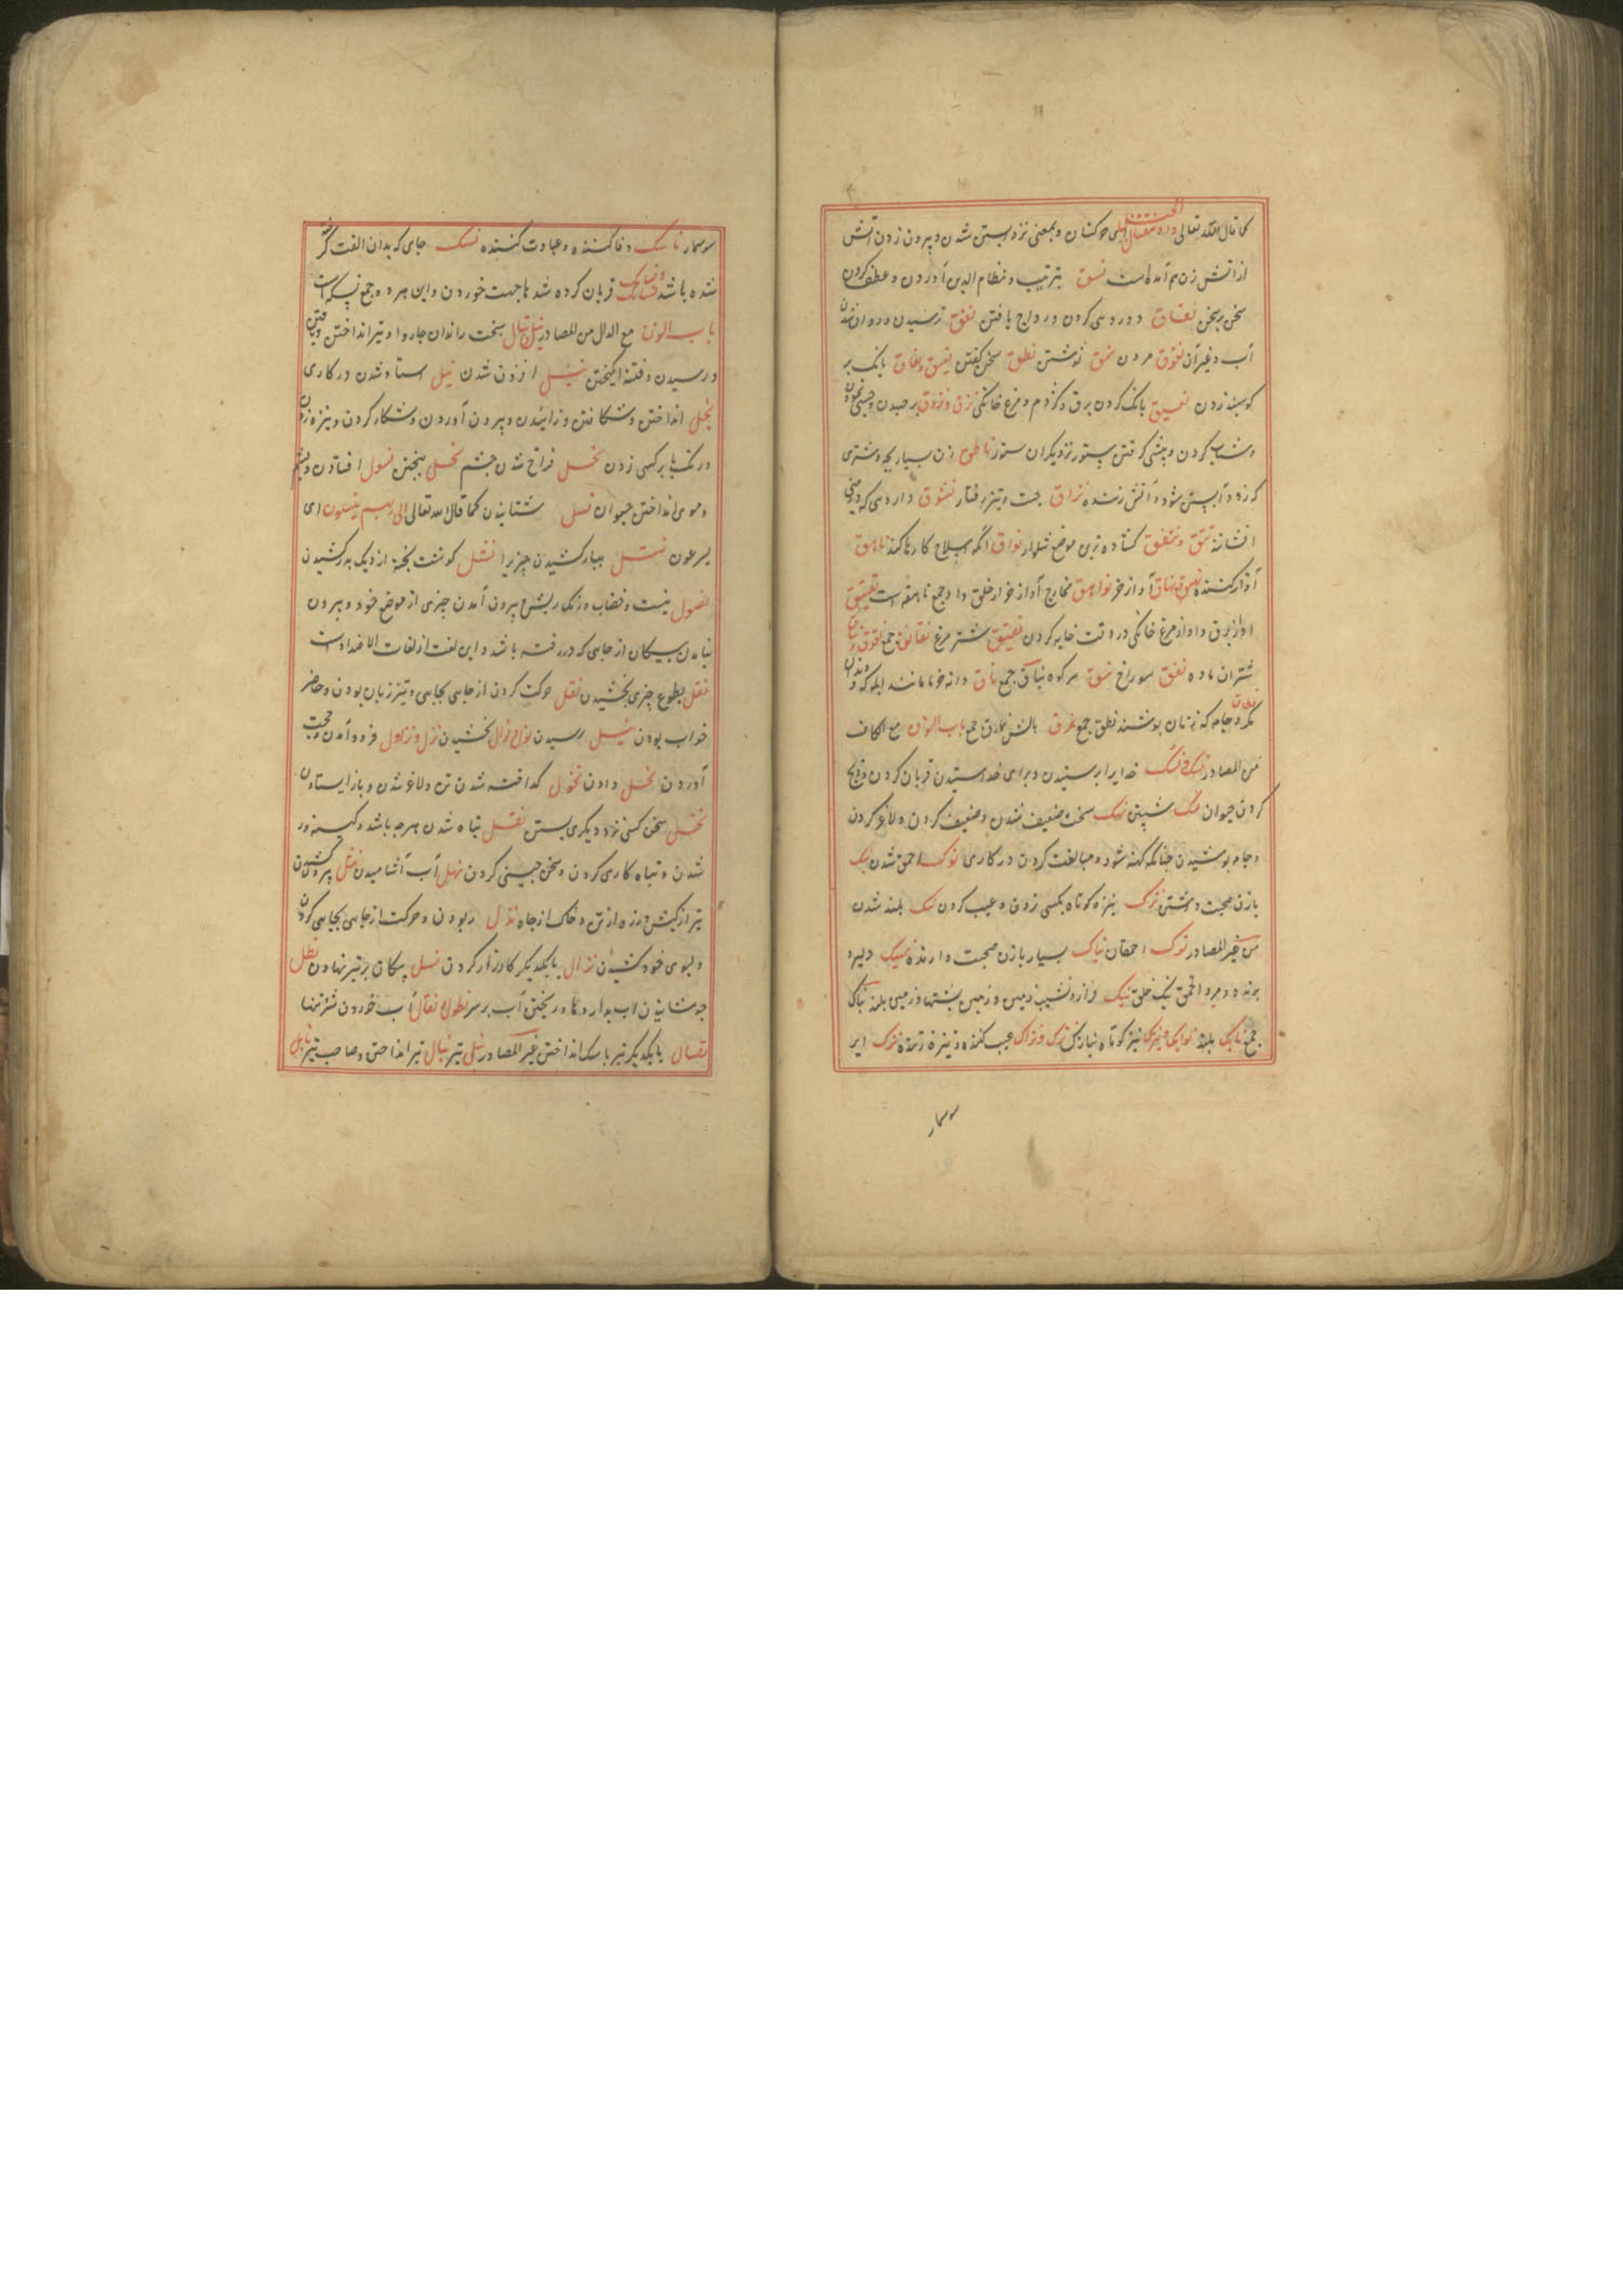 کما قال الله تعالی واذ نتقنا الجبل ای حرکنا و بمعنی نزد آبستن شدن و بیرون زدن آتش
از آتش زن هم آمده است نسق بترتیب و نظام آوردن و عطف کردن
سخن بر سخن نفاق دوروی کردن و رواج یافتن نفق ترسیدن و روان شدن
آب و غیر آن نفوق مردن نمق نوشتن نطق سخن گفتن نعیق و نغاق بانک بر
کوسبند زدن نقیق بانک کردن بزق و کژدم و مرغ خانکی نزق و نزوق برجهیدن
و شتاب کردن و پیشی کرفتن ستور نزدیکران ستور ناطق زن بسیار بچه و شتری
که زود آبستن شود و آتش زننده نزاق جست و تیز رفتار نشوق داروی که در بینی
افشانند کشاده ترین موضع شلوار نواق انکه اصلاح کارها کند ناهق
آواز کننده نهیق و نهاق آواز خر نواهق مخارج آواز خر از حلق و او جمع ناهقه است نقیق
اواز بزق و اواز مرغ خانکی در وقت خایه کردن نقنق شتر مرغ نقانق جمع
شتران ماده نفق سوراخ نیق سر کوه نیاق جمع
و جامه که زنان بوشند نطق جمع نمرق بالش نمارق جمع باب النون مع الکاف
من المصادر نسک خدایرا برستیدن و برای خدا قربان کردن و ذبح
کردن حیوان نهک سخت ضعیف شدن و ضعیف کردن و لاغر کردن
و جامه بوشیدن چنانکه کهنه شود و مبالغت کردن در کاری نوک احمق شدن نیک
بازن صحبت داشتن نزک نیزه کوتاه بکسی زدن و عیب کردن نبک بلند شدن
من غیر المصادر نوک احمقان نیاک بسیار بازن صحبت دارنده نهیک دلیر و
برنده و مرد احمق نیک خلق نبک فراز و نشیب زمین و زمین پشتها و زمین بلند نباک
جمع نابک بلند نوابک جمع نیزک نیزه کوتاه نیازک جمع نزک و نزاک عیب کننده و نیزه زننده نزک ایر
سوسمار
سوسمار ناسک وفا کننده و عبادت کننده نسک جای که بدان الفت کرفته
شده باشد قربان کرده شدها جهت خوردن و این هر دو جمع نسیکه است
باب النون مع اللام من المصادر نبل نبال سخت راندن چاروا و تیر انداختن و یافتن
و رسیدن و فتنه انکیختن افزون شدن نبل استاد شدن در کاری
نجل انداختن و شکافتن و زائیدن و بیرون آوردن و شکار کردن و نیزه زدن
و رنک با بر کسی زدن نجل فراخ شدن چشم نخل بیختن نسول افتادن و پشم
و موی انداختن حیوان نسل شتابیدن کما قال الله تعالی الی ربهم ینسلون ای
یسرعون نتل ببار کشیدن چیزیرا نشل کوشت پخته از دیک بدر کشیدن
نصول نیست و خضاب و رنک ریش بیرون آمدن چیزی از موضع خود و بیرون
نیامدن پیکان از جای که در رفته باشد و این لغت از لغات الاضداد است
نفل بطوع چیزی بخشیدن نقل حرکت کردن از جای بجایی و تیز زبان بودن و حاضر
جواب بودن نیل رسیدن نوال بخشیدن نزل و نزول فرود آمدن و حجت
آوردن نحل دادن نحول کداخته شدن تن و لاغر شدن و باز ایستادن
نحل سخن کسی بر دیکری بستن نغل تباه شدن هرچه باشد و کینه ور
شدن و تباه کاری کردن و سخن چینی کردن نهل آب آشامیدن نثل بیرون کشیدن
تیر از کیش و زره از تن و خاک از چاه ربودن و حرکت از جایی بجایی کردن
و بسوی خود کشیدن نزال بایکدیکر کارزار کردن نصل پیکان بر تیر نهادن نطل
جوشانیدن آب بداروها و ریختن آب بر سر نطول نقال آب خوردن شتر تنها
نضال بایکدیکر تیر با سنک انداختن غیر المصادر نبل تیر نبال تیر انداختن و صاحب تیر نابل